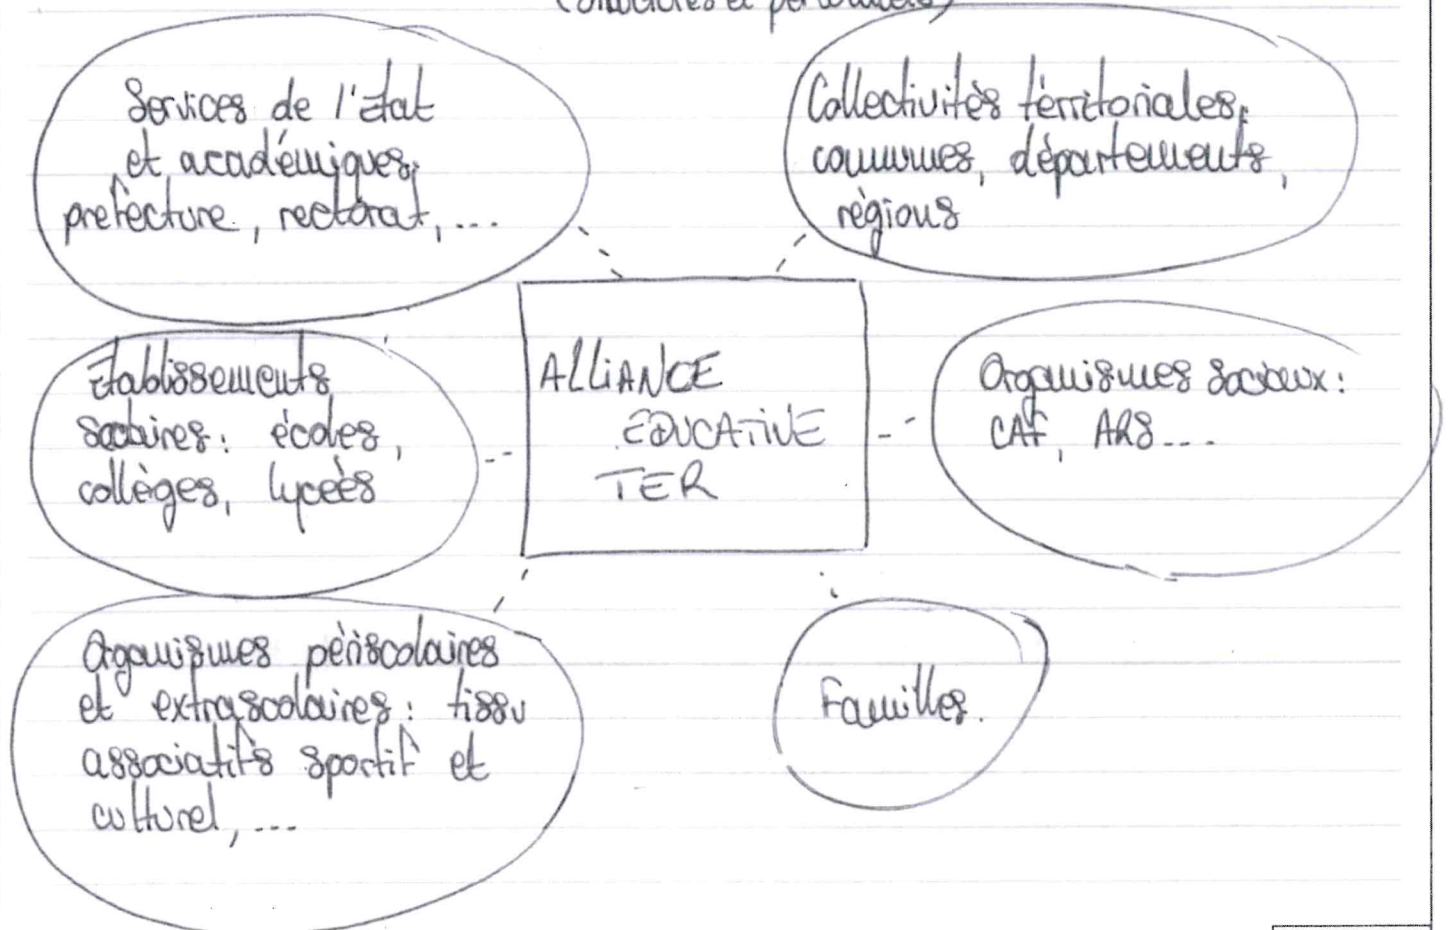 Services de l'Etat
et académiques,
prefècture, rectorat, ...
Collectivités térritoriales,
communes, départements,
régions
Etablissements
scolaires: écoles,
collèges, lycées
ALLIANCE
EDUCATIVE
TER
Organismes sociaux:
CAF, ARS....
Organismes périscolaires
et extrascolaires: tissu
associatifs sportif et
culturel, ...
Familles.